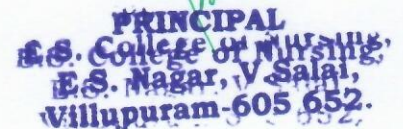 PRINCIPAL
E.S. College of Nursing,
E.S. Nagar, V.Salai,
Villupuram-605 652.